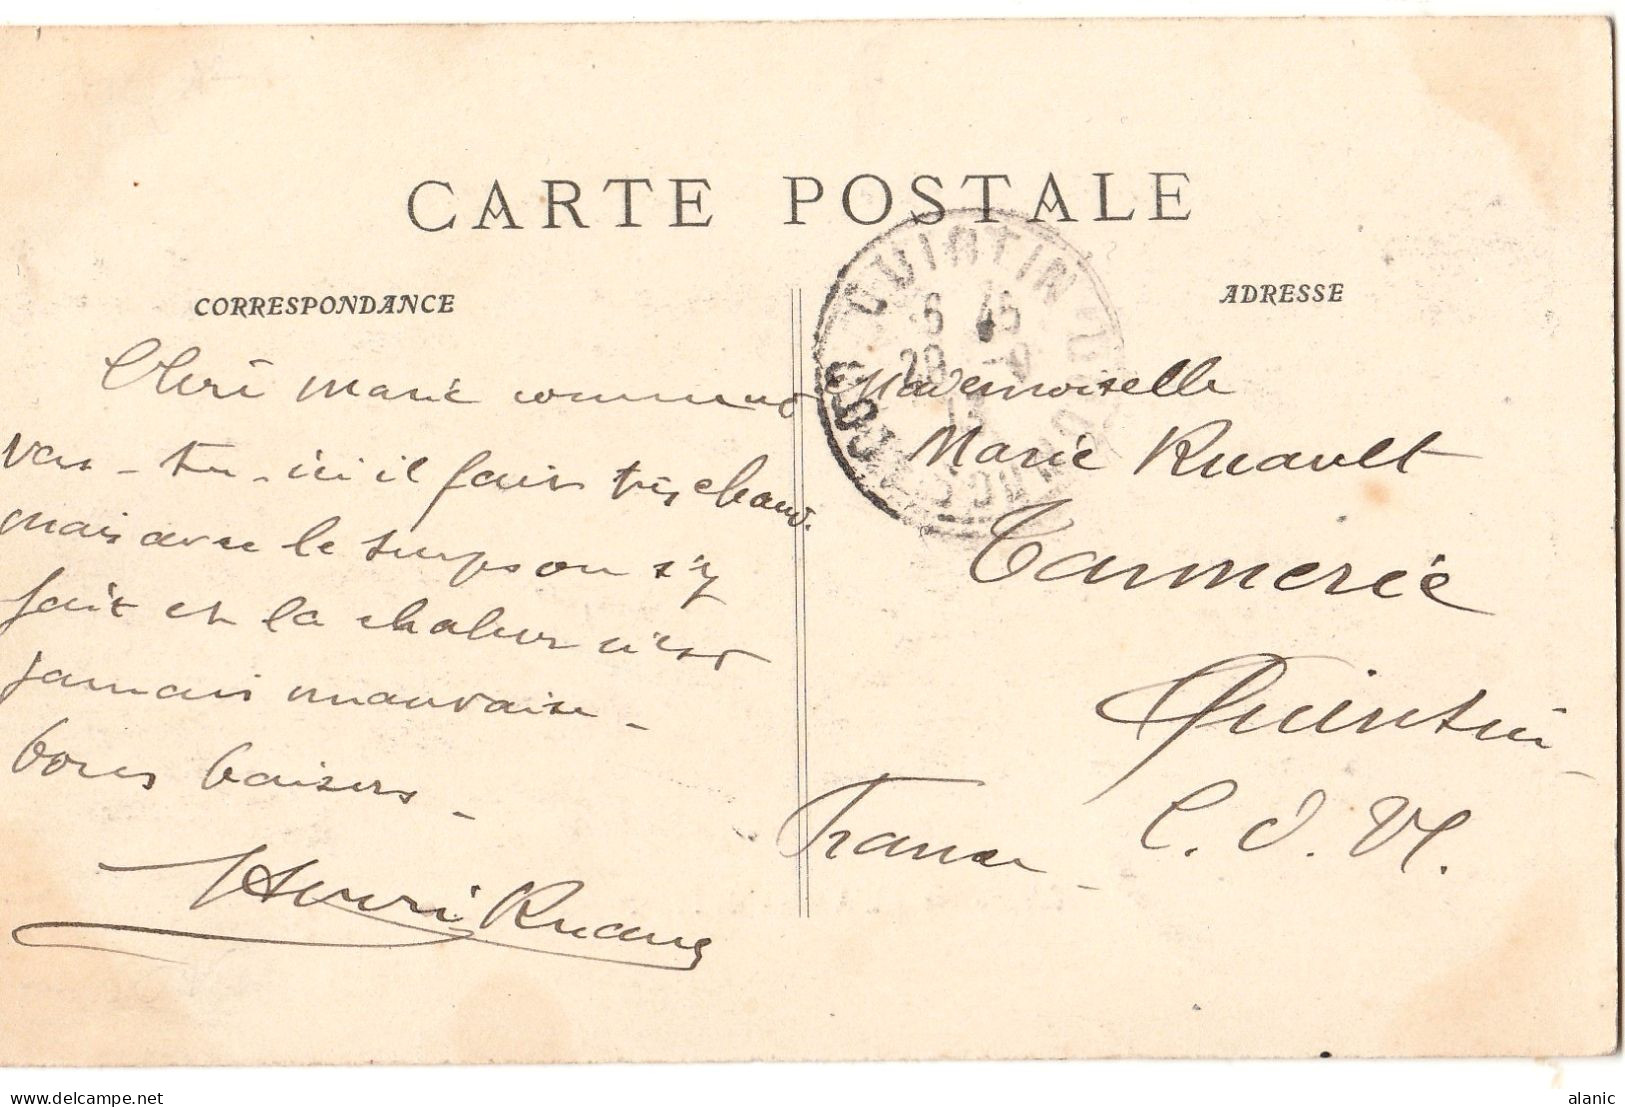 CARTE POSTALE
CORRESPONDANCE
Chère Marie comment
vas-tu. ici il fait très chaud.
mais avec le temps on s'y
fait et la chaleur n'est
jamais mauvaise_
bons baisers_
Henri Ruault
ADRESSE
Mademoiselle
Marie Ruault
Tannerie
Quintin_
France_ C. d. N.
QUINTIN
6 45
20
13
CÔTES DU NORD
delcampe.net
alanic